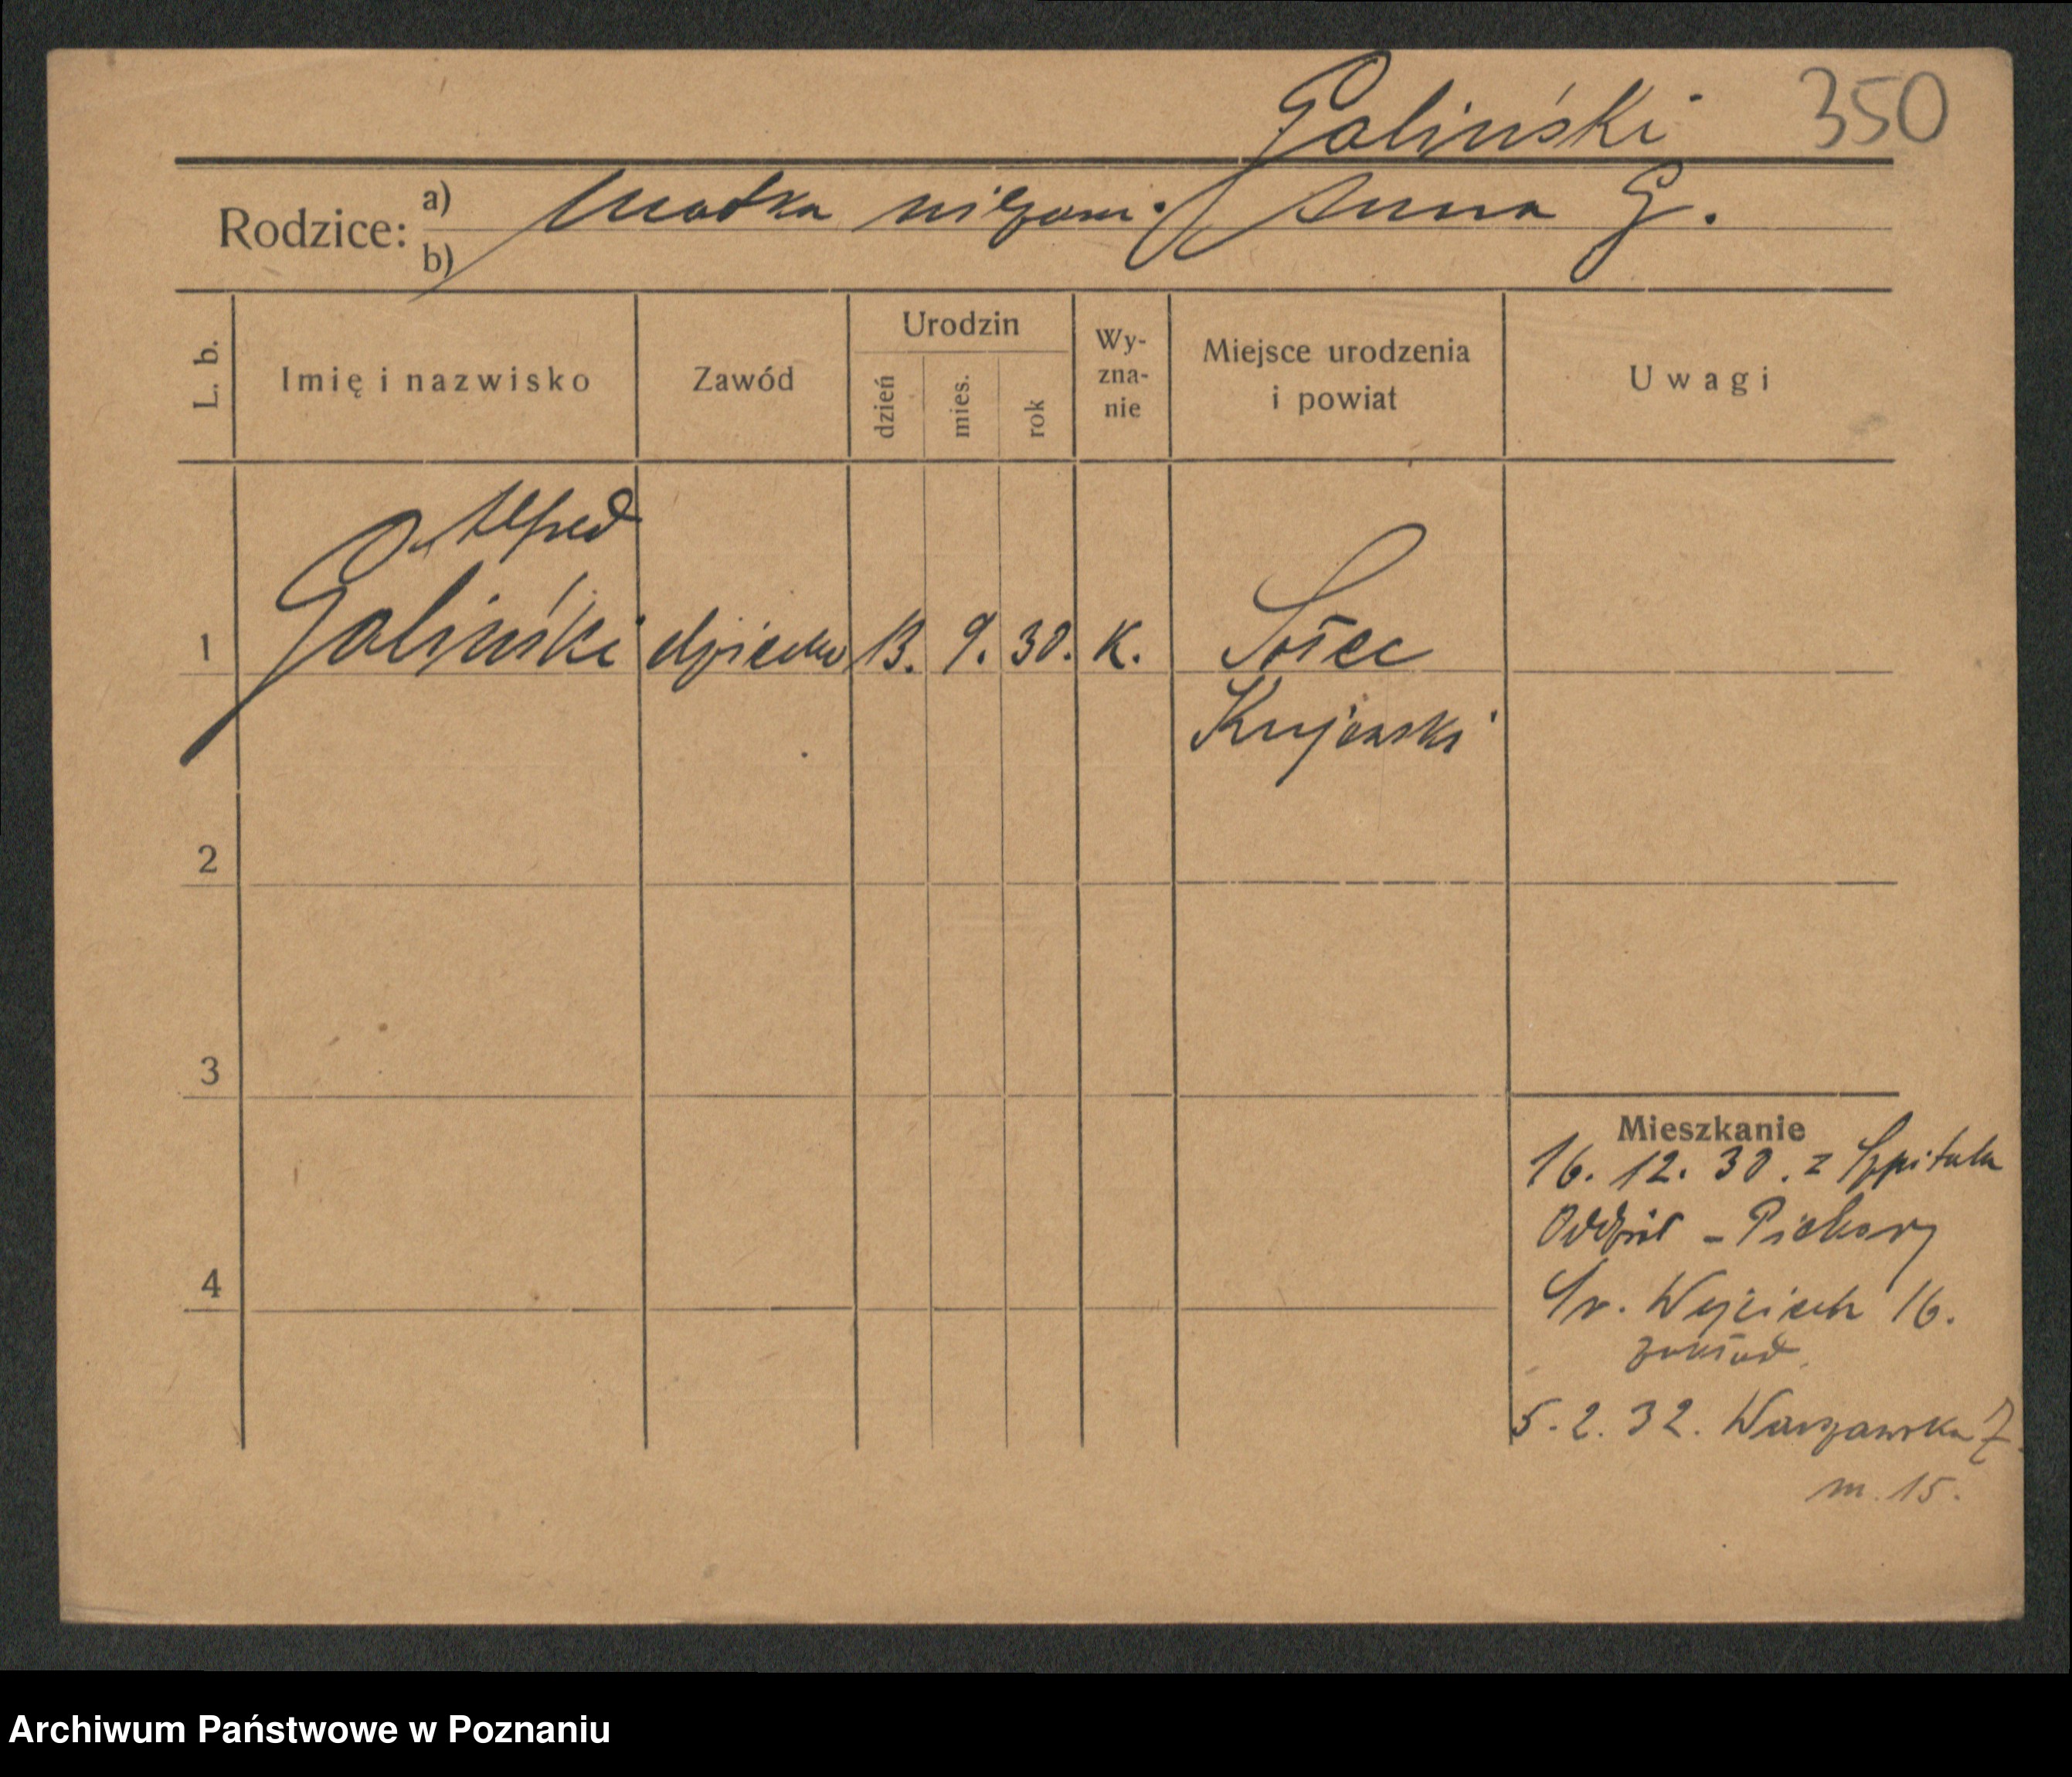 Galiński 350
Rodzice: a) Matka niezam. Anna G.
b)
L. b. Imię i nazwisko Zawód Urodzin dzień mies. rok Wy-zna-nie Miejsce urodzenia i powiat Uwagi
Alfred
1 Galiński dziecko 13. 9. 30. K. Solec
Kujawski
2
3
Mieszkanie
16. 12. 30. z Szpitala
Oddział - Piekary
4
Św. Wojciech 16.
zakład.
5. 2. 32. Warszawska 7.
m. 15.
Archiwum Państwowe w Poznaniu